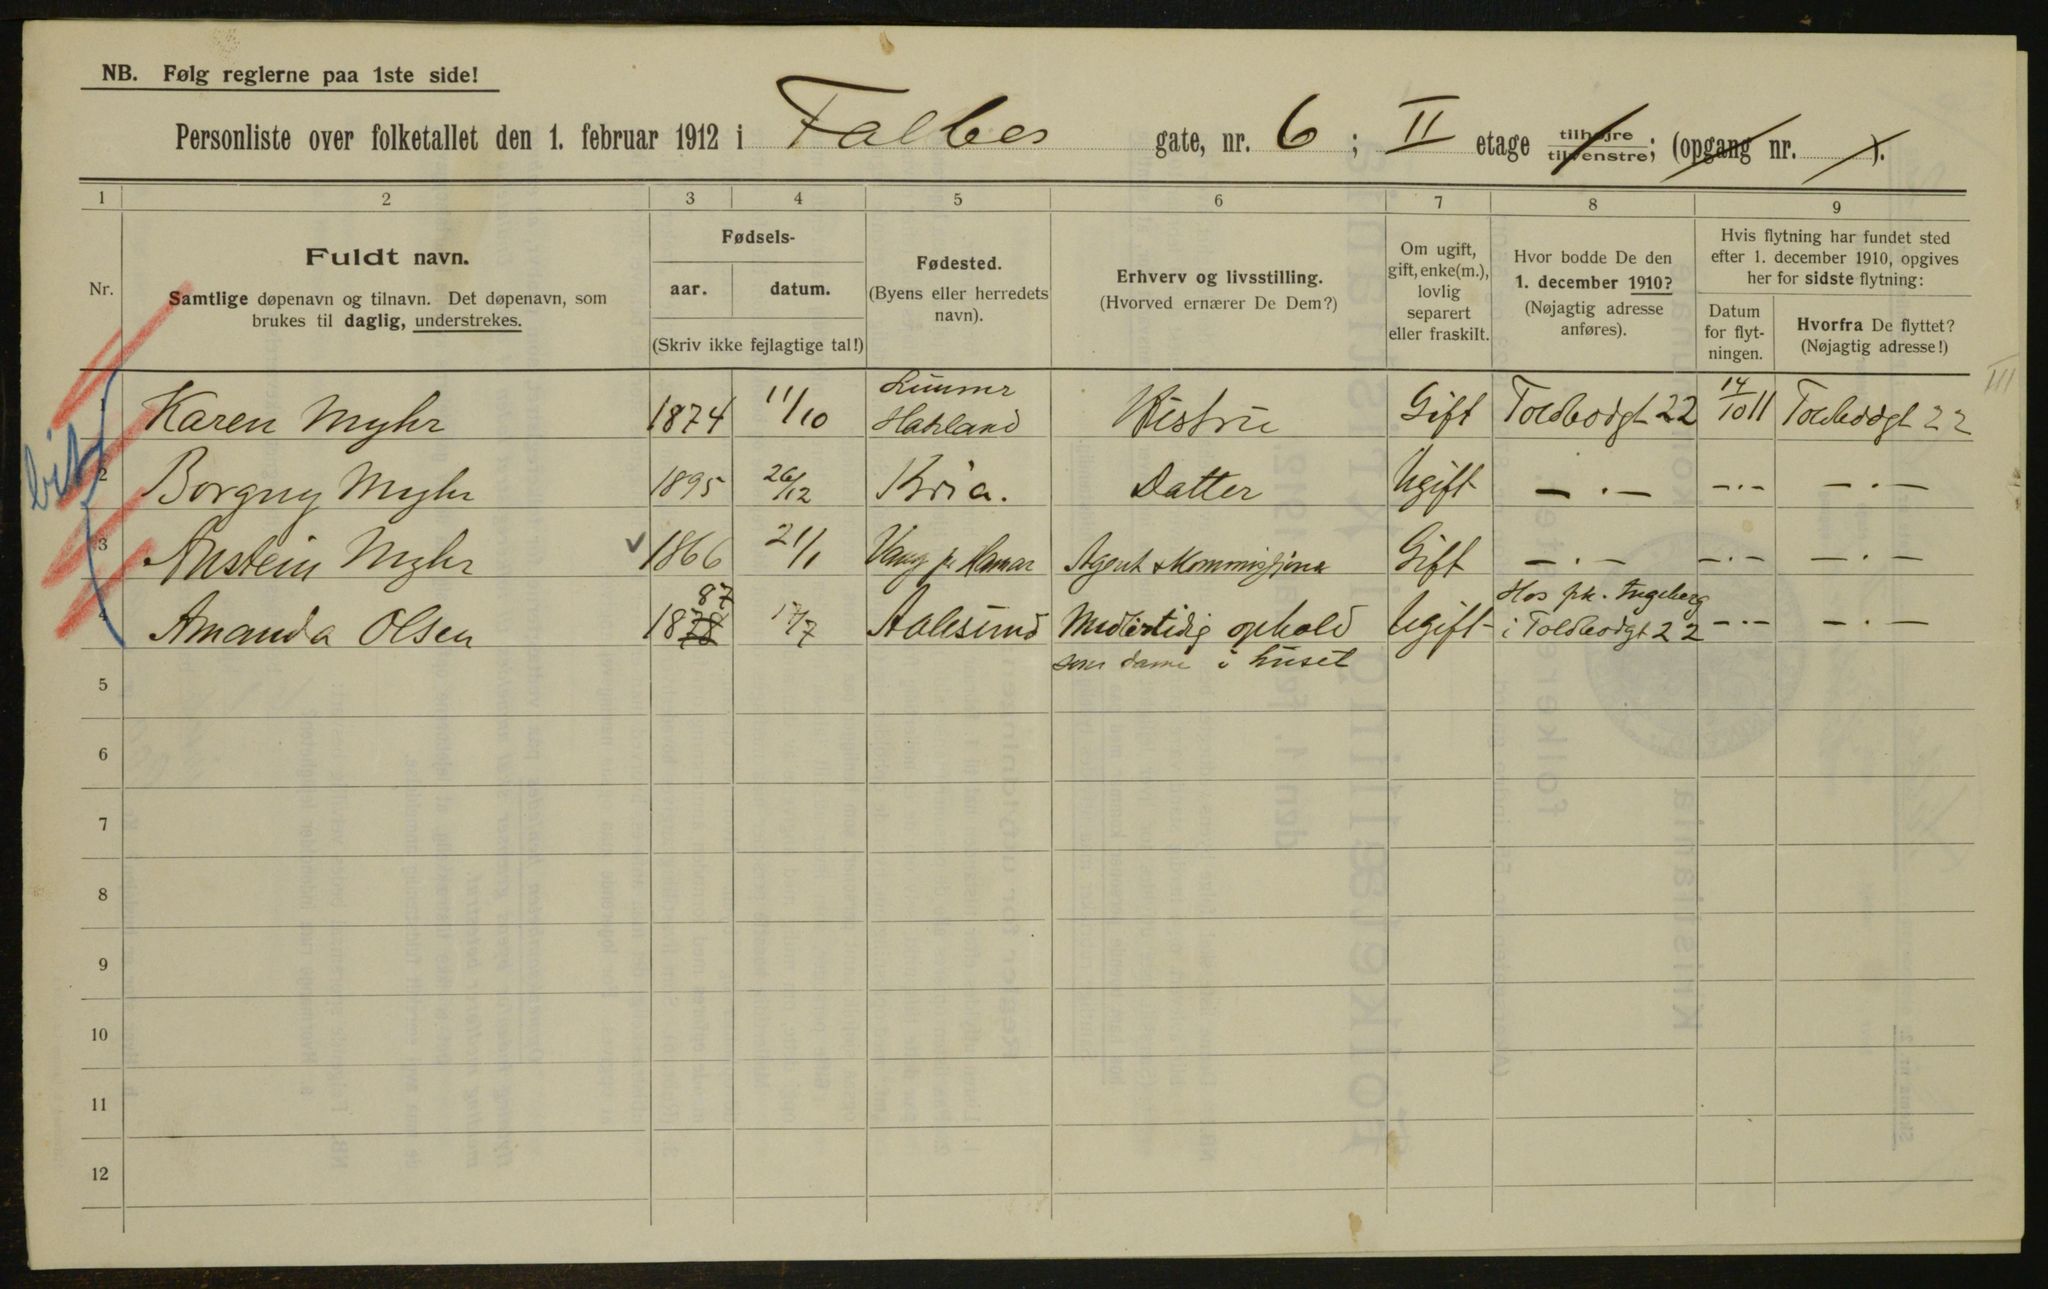 NB. Følg reglerne paa 1ste side!
Personliste over folketallet den 1. februar 1912 i Falbes gate, nr. 6 ; II etage tilhøjre tilvenstre; (opgang nr. ).
1 2 3 4 5 6 7 8 9
Nr.
Fuldt navn.
Samtlige døpenavn og tilnavn. Det døpenavn, som
brukes til daglig, understrekes.
Fødsels-
aar. datum.
(Skriv ikke fejlagtige tal!)
Fødested.
(Byens eller herredets
navn).
Erhverv og livsstilling.
(Hvorved ernærer De Dem?)
Om ugift,
gift, enke(m.),
lovlig
separert
eller fraskilt.
Hvor bodde De den
1. december 1910?
(Nøjagtig adresse
anføres).
Hvis flytning har fundet sted
efter 1. december 1910, opgives
her for sidste flytning:
Datum
for flyt-
ningen.
Hvorfra De flyttet?
(Nøjagtig adresse!)
III
1 Karen Myhr 1874 11/10 Lunner Hadeland Hustru Gift Toldbodgt 22 14/10 11 Toldbodgt 22
2 Borgny Myhr 1895 26/12 Kria. Datter Ugift — . — — . — — . —
3 Anstein Myhr 1866 21/1 Vang pr Hamar Agent & Kommisjonær Gift — . — — . — — . —
4 Amanda Olsen 1878 87 17/7 Aalesund Midlertidig ophold Ugift Hos frk. Ingeberg
som dame i huset i Toldbodgt 22 — . — — . —
5
6
7
8
9
10
11
12